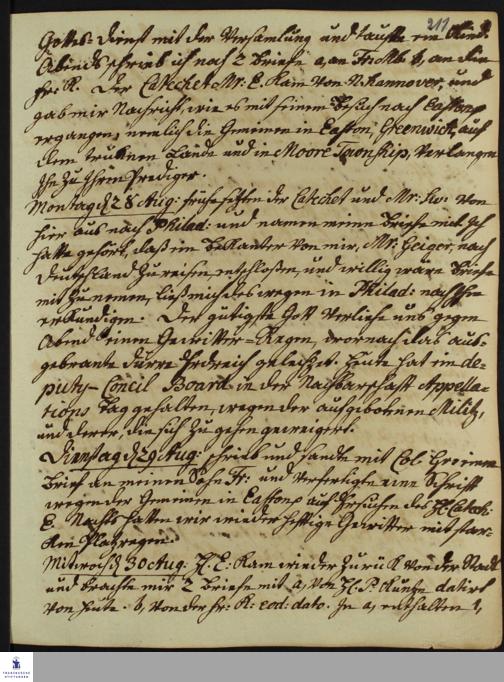 211
Gottes-Dienst mit der Versamlung und taufte ein Kind.
Abends schrieb ich noch 2 briefe a, an Fridr: b, an den
Hr: K. Der Catechet Mr: E. kam von N. Hannover, und
gab mir Nachricht, wie es mit seinem Besuch nach Easton
ergangen, nemlich die Gemeinen in Easton, Greenwich, auf
dem truknen Lande und in Moore Township, verlangen
Ihn zu Ihrem Prediger.
Montag d 28 Aug: frühe sezten der Catechet und Mr: Sw: von
hier aus nach Philad: und namen meine Briefe mit. Ich
hatte gehört, daß ein Bekanter von mir, Mr: Geiger, nach
Deutschland zu reisen entschloßen, und willig wäre Briefe
mit zu nemen, ließ mich deswegen in Philad: nach Ihm
erkundigen. Der gütigste Gott verliehe uns gegen
Abend einen Gewitter-Regen, wornach das aus-
gebrante dürre Erdreich gelechzet. Heute hat ein de-
puty-Concil Board in der Nachbarschaft Appella-
tions Tag gehalten, wegen der aufgebotenen Militz,
und derer, die sich zu gehen geweigert.
Dienstag d 29 Aug: schrieb und sandte mit Col:
Brief an meinen Sohn Fr: und verfertigte eine Schrift
wegen der Gemeinen in Easton auf Ersuchen des H. Catech:
E. Nachts hatten wir wieder heftige Gewitter mit star-
ken Plazregen.
Mitwoch d 30 Aug. H. E. kam wieder zurük von der Stadt
und brachte mir 2 Briefe mit a, von H. P. Kunze datirt
von heute. b, von der Fr: K: eod: dato. In a, enthalten 1,
FRANCKESCHE STIFTUNGEN